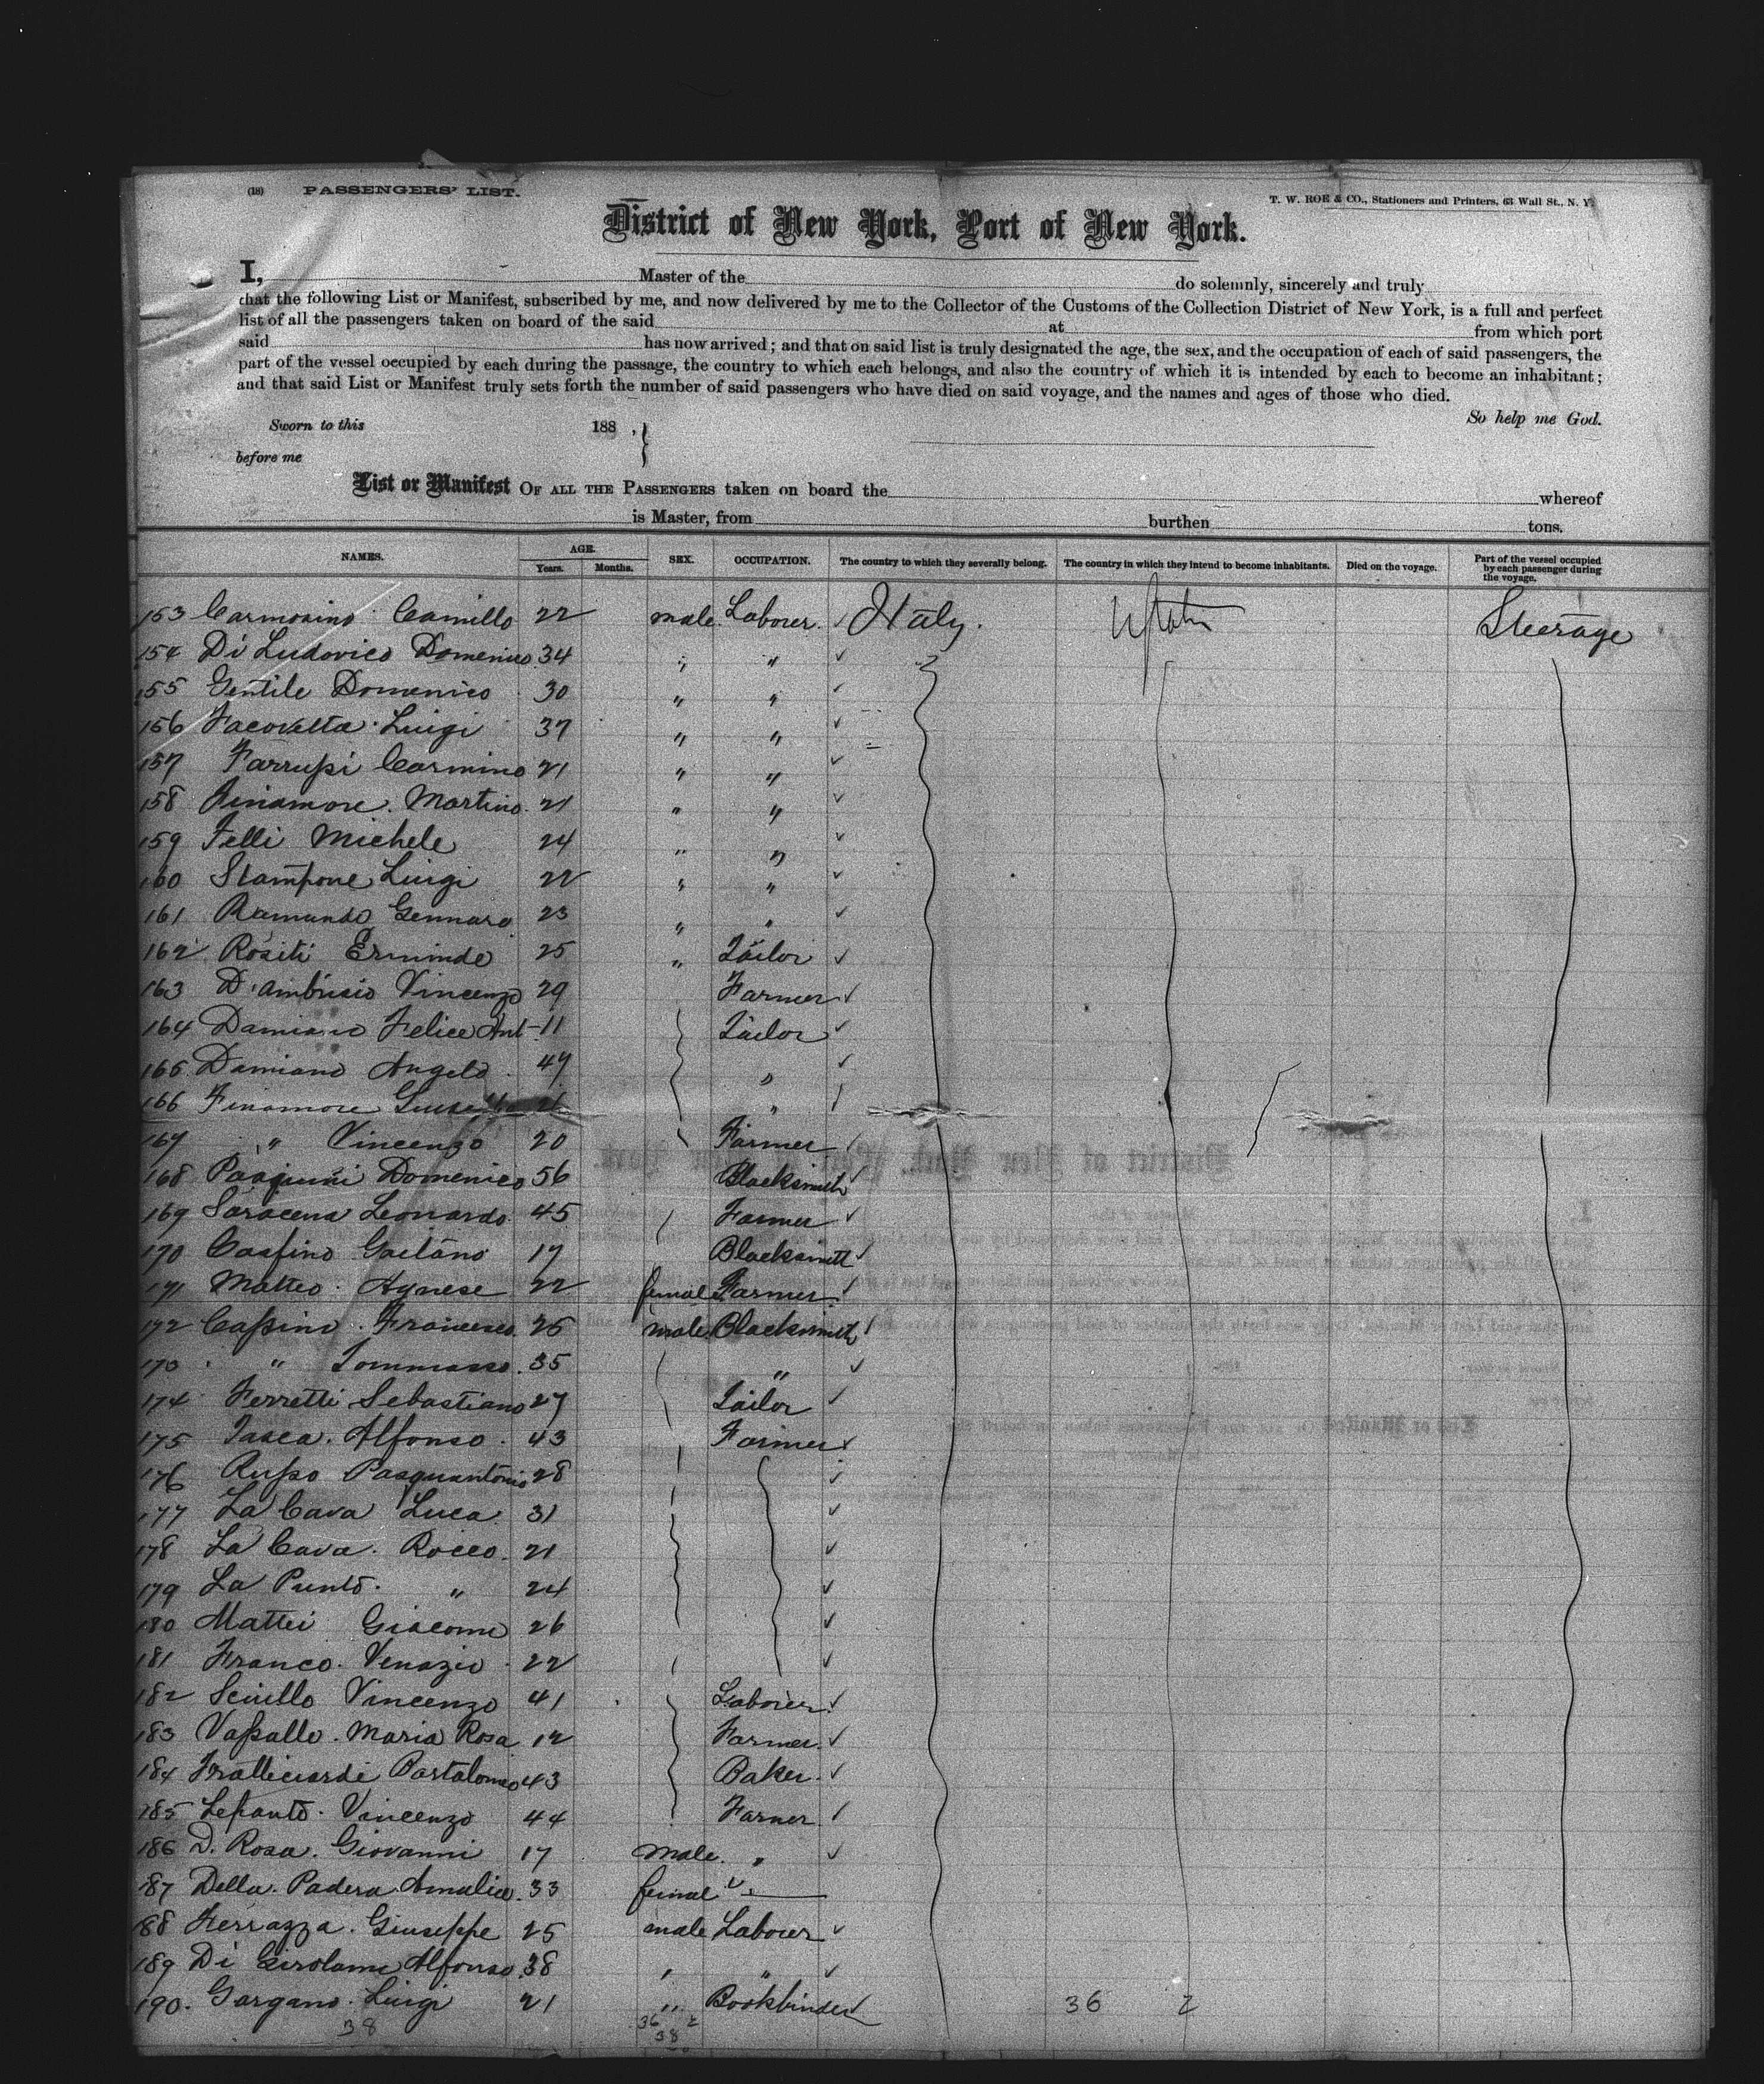 (18) PASSENGERS' LIST.
T. W. ROE & CO., Stationers and Printers, 63 Wall St., N. Y.
District of New York, Port of New York.
I, Master of the do solemnly, sincerely and truly
that the following List or Manifest, subscribed by me, and now delivered by me to the Collector of the Customs of the Collection District of New York, is a full and perfect
list of all the passengers taken on board of the said at from which port
said has now arrived; and that on said list is truly designated the age, the sex, and the occupation of each of said passengers, the
part of the vessel occupied by each during the passage, the country to which each belongs, and also the country of which it is intended by each to become an inhabitant;
and that said List or Manifest truly sets forth the number of said passengers who have died on said voyage, and the names and ages of those who died.
So help me God.
Sworn to this 188 ,
before me
List or Manifest OF ALL THE PASSENGERS taken on board the whereof
is Master, from burthen tons.
NAMES. AGE. Years. Months. SEX. OCCUPATION. The country to which they severally belong. The country in which they intend to become inhabitants. Died on the voyage. Part of the vessel occupied by each passenger during the voyage.
153 Carmosino Camillo 22 male Laborer Italy. UStates Steerage
154 Di Ludovico Domenico 34 " "
155 Gentile Domenico 30 " "
156 Iacovetta Luigi 37 " "
157 Farrupi Carmino 21 " "
158 Finamore Martino 21 " "
159 Felli Michele 24 " "
160 Stampone Luigi 22 " "
161 Ramundo Gennaro 23 " "
162 Rositi Erminde 25 " Tailor
163 D'Ambrisio Vincenzo 29 Farmer
164 Damiano Felice Ant 11 Tailor
165 Damiano Angelo 47 "
166 Finamore "
167 " Vincenzo 20 Farmer
168 Pasquini Domenico 56 Blacksmith
169 Saracena Leonardo 45 Farmer
170 Casfino Gaetano 17 Blacksmith
171 Matteo Agnese 22 female Farmer
172 Cassino Francesco 26 male Blacksmith
173 " Tommasso 35 "
174 Ferretti Sebastiano 27 Tailor
175 Tasca Alfonso 43 Farmer
176 Russo Pasquantonio 28
177 La Cava Luca 31
178 La Cava Rocco 21
179 La Punto " 24
180 Mattei Giacomo 26
181 Franco Venazio 22
182 Sciullo Vincenzo 41 Laborer
183 Vassallo Maria Rosa 12 Farmer
184 Bartalomeo 43 Baker
185 Lepanto Vincenzo 44 Farmer
186 D. Rosa Giovanni 17 male "
187 Della Padera Amalia 33 female "
188 Ferrazza Giuseppe 25 male Laborer
189 Di Girolamo Alfonso 38 " "
190 Gargano Luigi 21 " Bookbinder 36 2
38 36 2
38